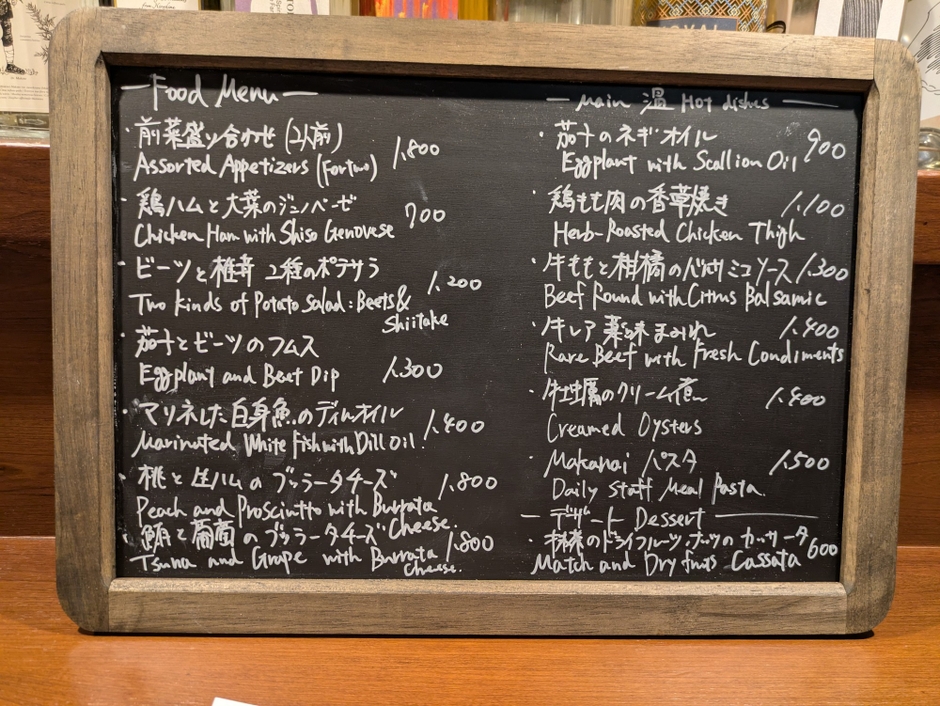 Food Menu
・前菜盛り合わせ (2人前)
Assorted Appetizers (For two) 1.800
・鶏ハムと大葉のジェノベーゼ 700
Chicken Ham with Shiso Genovese
・ビーツと椎茸 2種のポテサラ 1.200
Two kinds of Potato Salad: Beets &
Shiitake
・茄子とビーツのフムス
Eggplant and Beet Dip 1.300
・マリネした白身魚のディルオイル 1.400
Marinated White Fish with Dill Oil
・桃と生ハムのブッラータチーズ 1.800
Peach and Prosciutto with Burrata
Cheese.
・鮪と葡萄のブッラータチーズ 1.800
Tsuna and Grape with Burrata
Cheese.
Main 温 Hot dishes
・茄子のネギオイル 900
Eggplant with Scallion Oil
・鶏もも肉の香草焼き 1.100
Herb-Roasted Chicken Thigh
・牛ももと柑橘のバルサミコソース 1.300
Beef Round with Citrus Balsamic
・牛レア薬味まみれ 1.400
Rare Beef with Fresh Condiments
・牡蠣のクリーム煮 1.400
Creamed Oysters
・Makanai パスタ 1.500
Daily Staff Meal Pasta.
デザート Dessert
・抹茶のドライフルーツ、ナッツのカッサータ 600
Match and Dry fruits Cassata